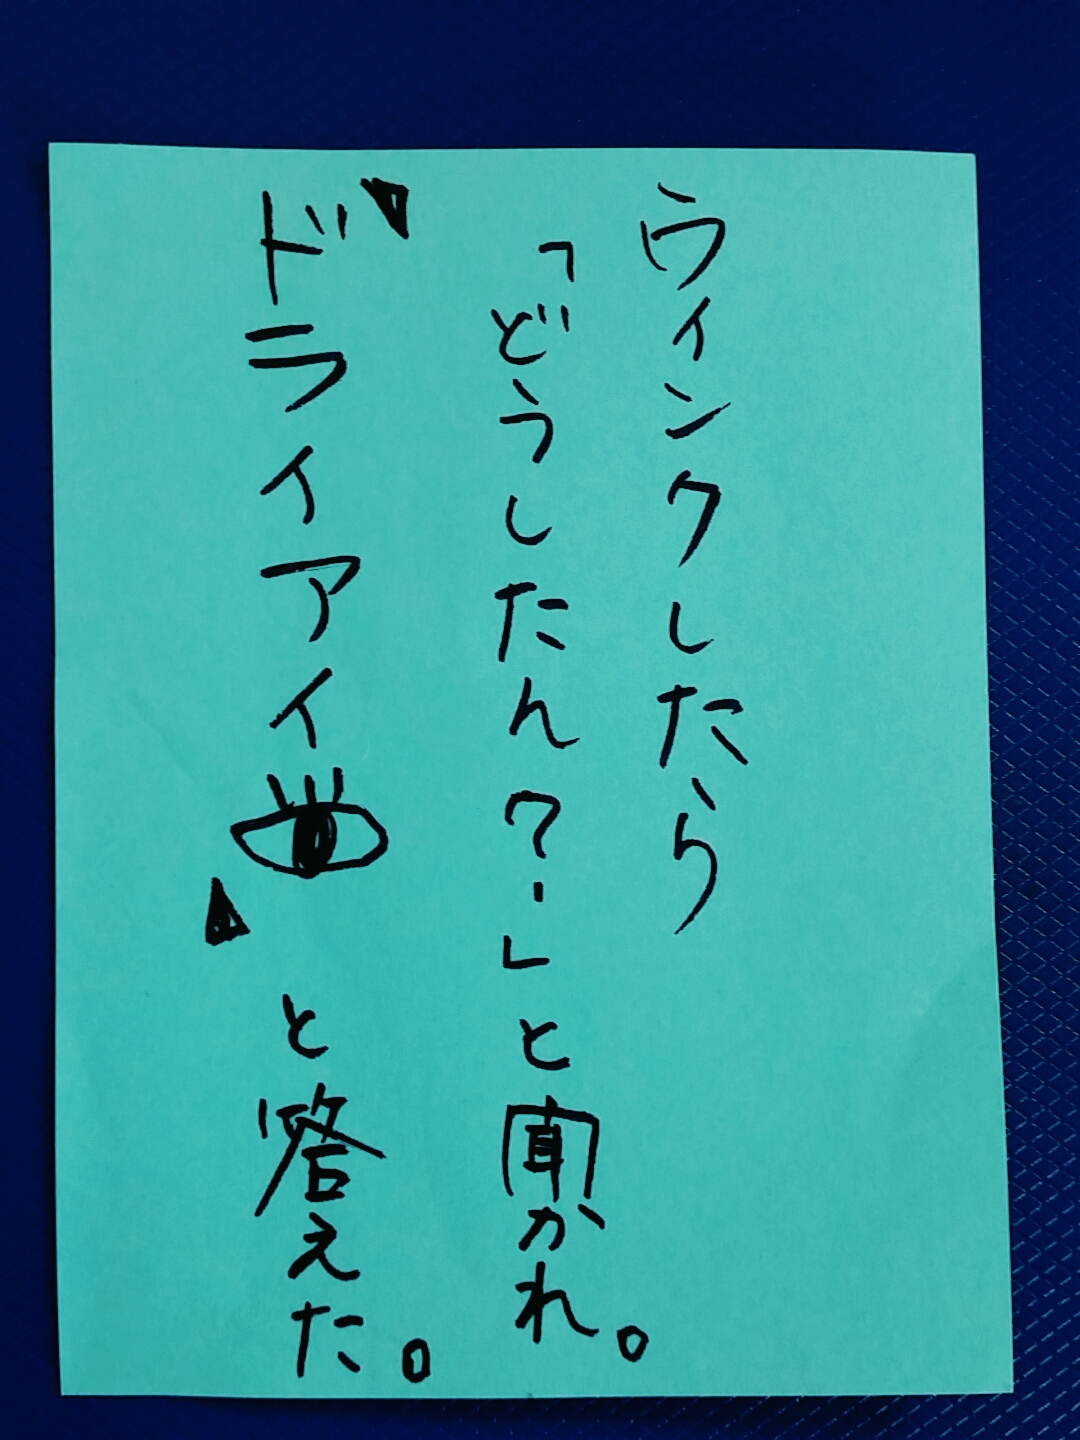 ウィンクしたら
「どうしたん?」と聞かれ。
"ドライアイ"と答えた。